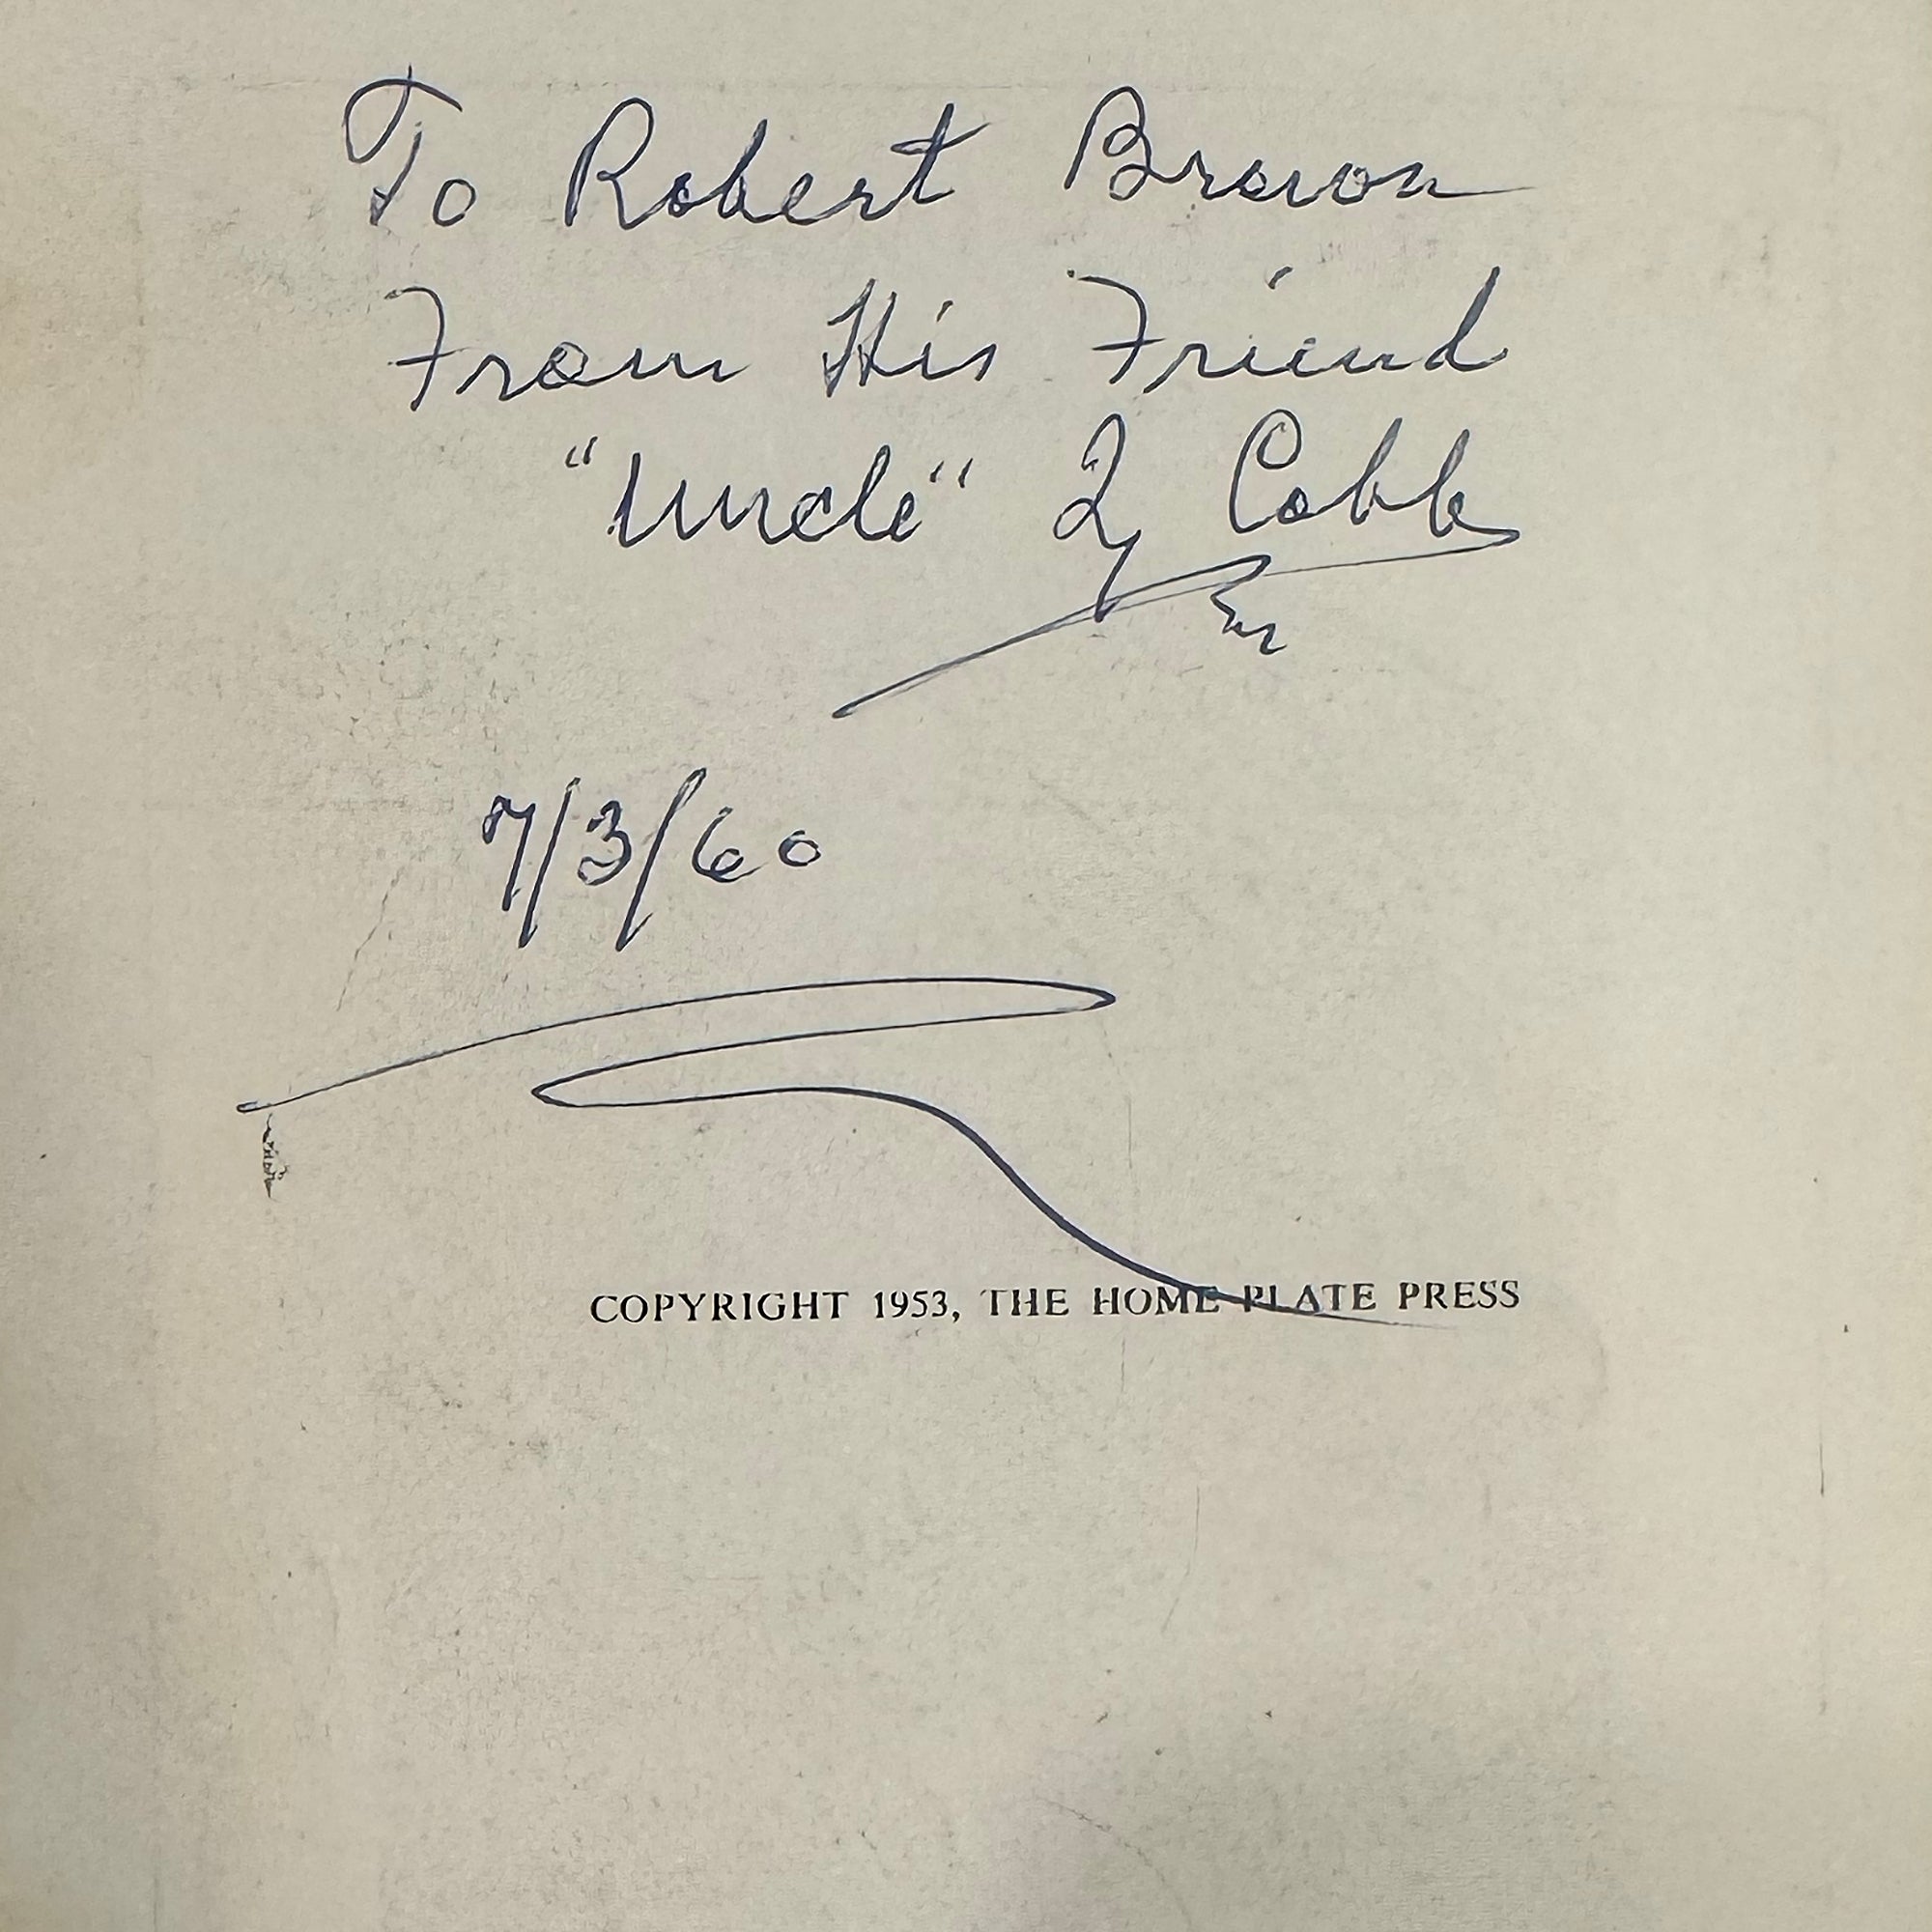 To Robert Brown
From His Friend
"Uncle" Ty Cobb
7/3/60
COPYRIGHT 1953, THE HOME PLATE PRESS